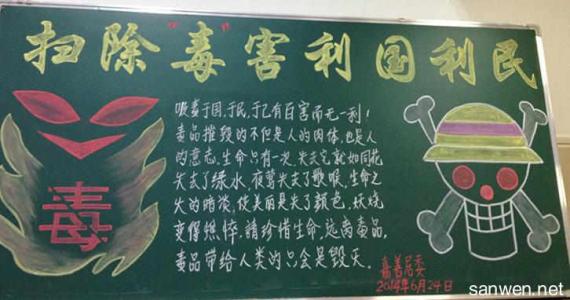 扫除“毒”害利国利民
吸毒于国,于民,于己有百害而无一利!
毒品摧毁的不但是人的肉体,也是人
的意志。生命只有一次,失去它就如同花
失去了绿水,夜莺失去了歌喉,生命之
火的暗淡,使美丽失去了颜色,妖娆
变得憔悴,请珍惜生命,远离毒品,
毒品带给人类的只会是毁灭。
毒
嘉善居委
2014年6月24日
sanwen.net